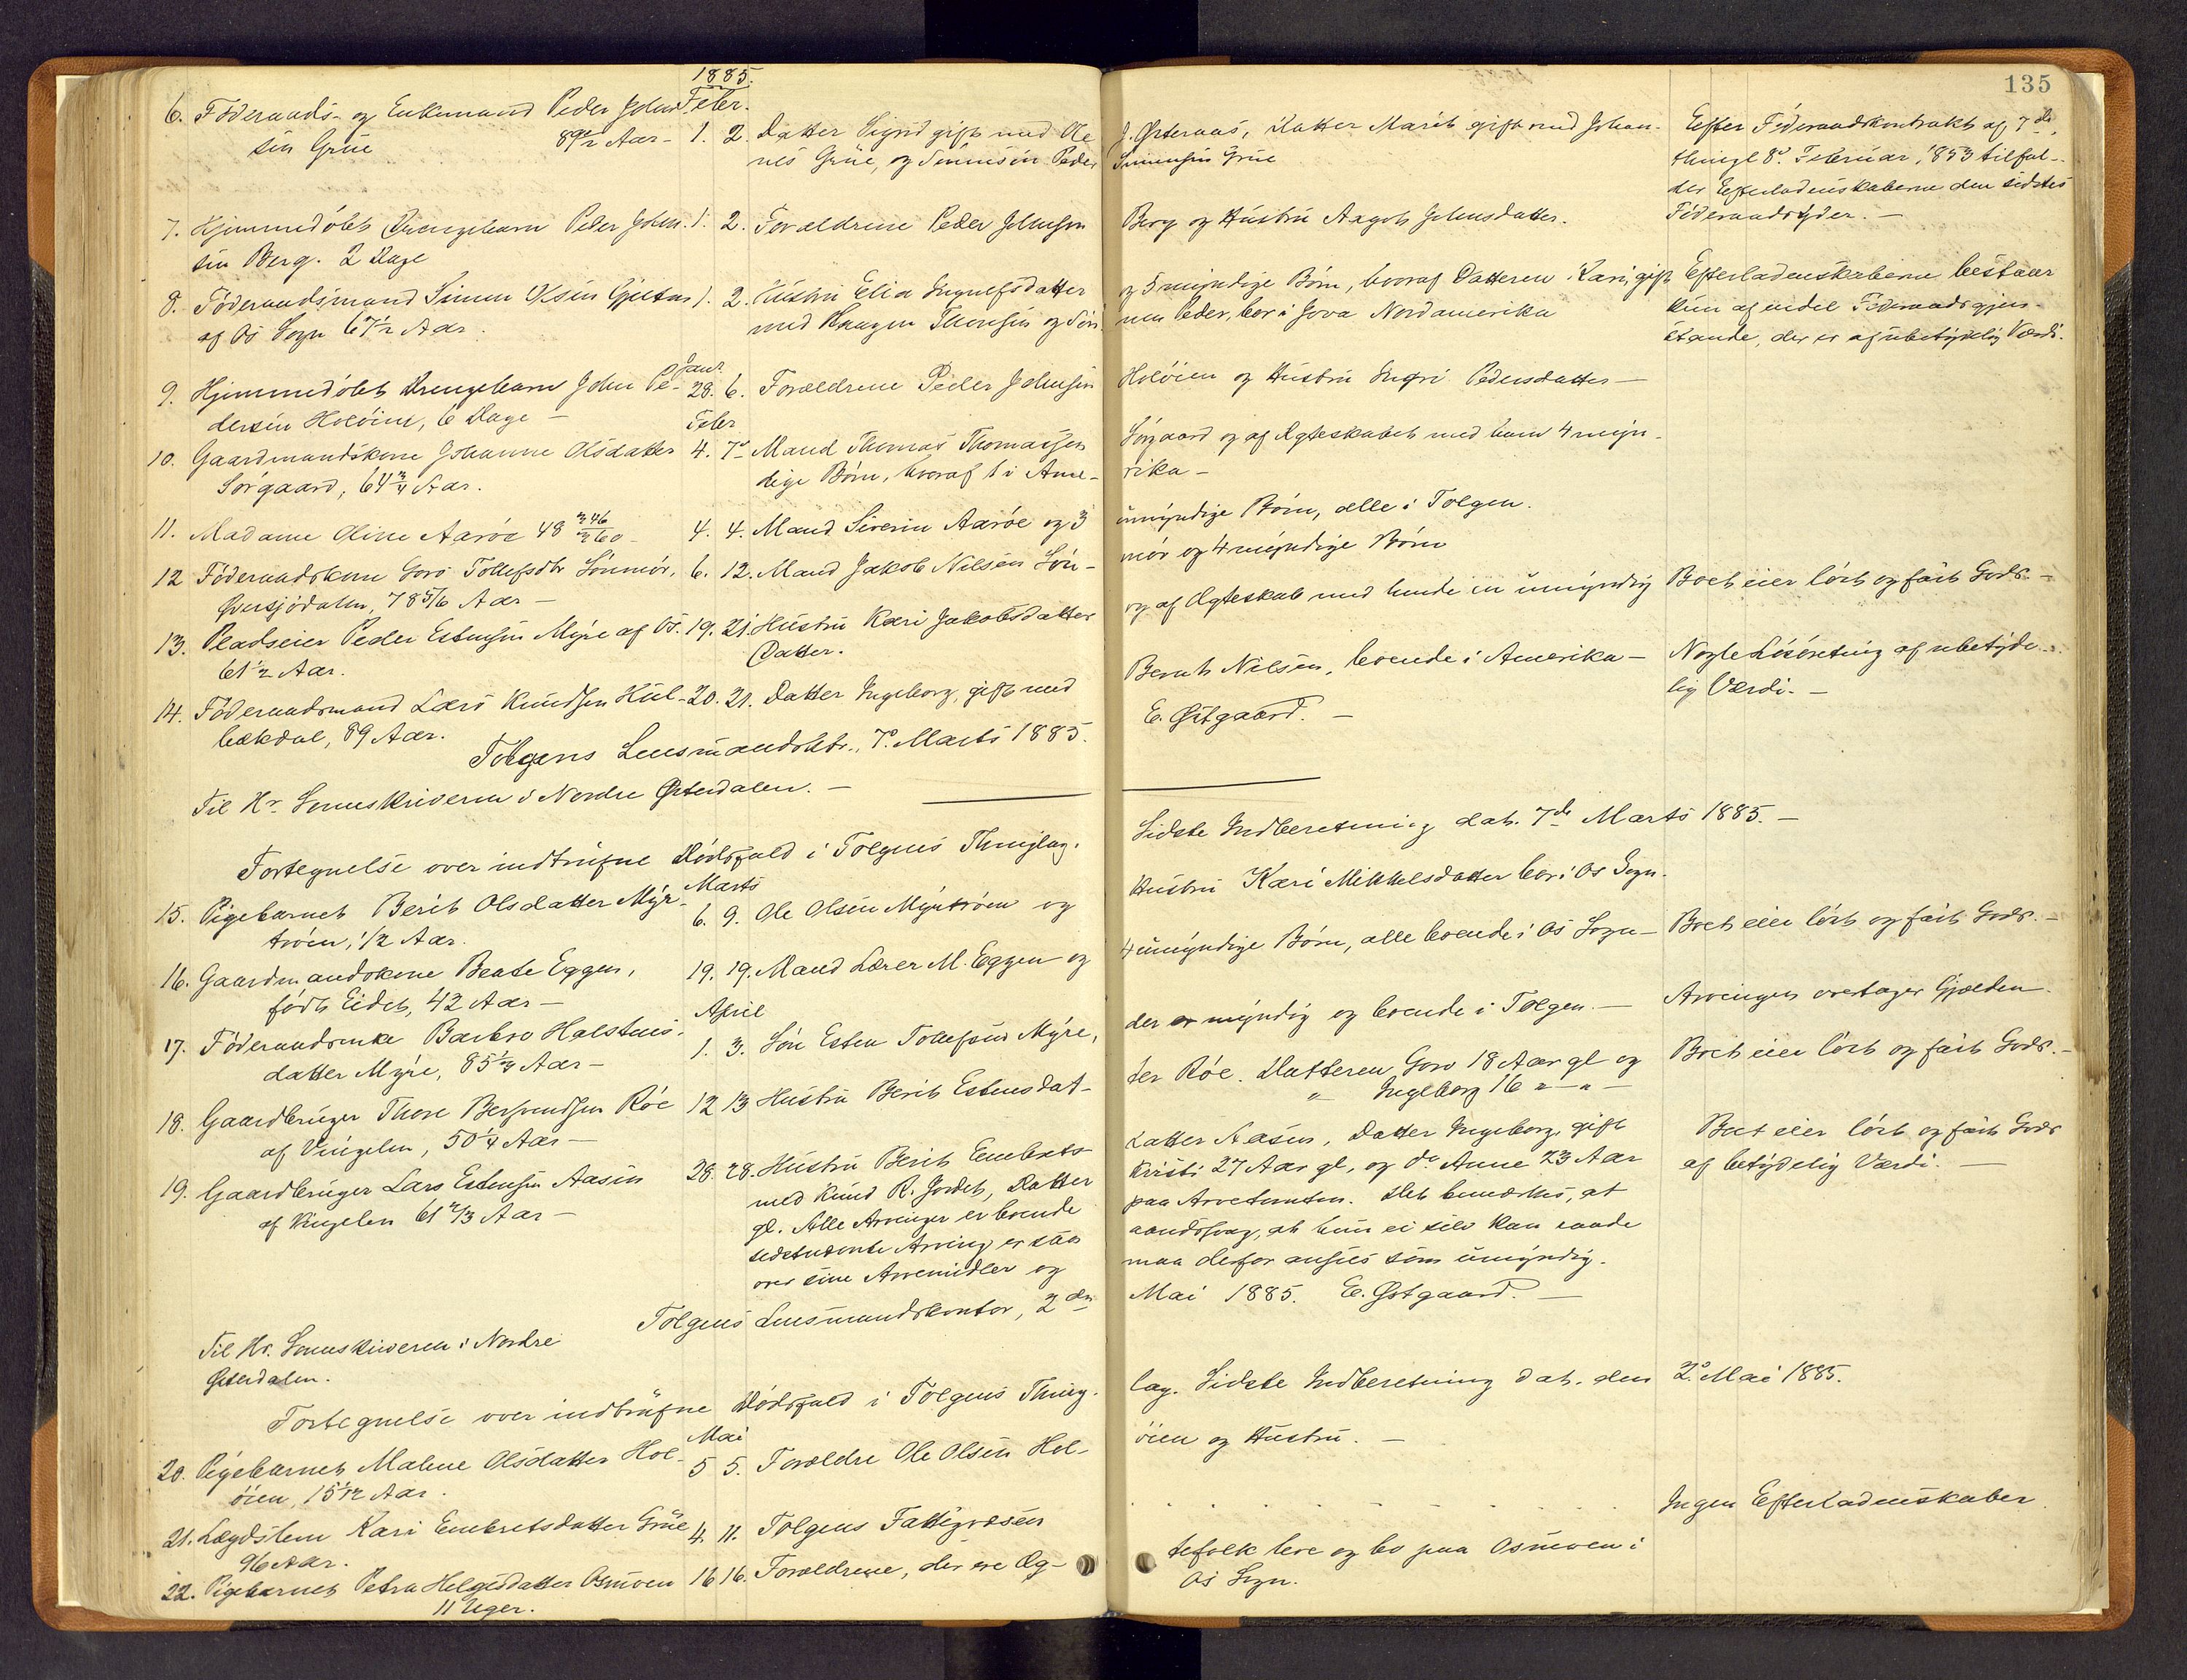 1885.
135
6. Föderaads- og Enkemand Peder John-
Febr.
sen Grüe 89 1/2 Aar - 1. 2. Datter Sigrid gift med Ole
nes Grüe, og Sönnesön Peder
J. Østeraas, Datter Marit gift med Johan-
Simensen Grue
Efter Föderaadskontrakt af 7de,
thingl 8d. Februar 1853 tilfal-
der Efterladenskaberne den sidstes
Föderaadsyder. -
7. Hjemmedöbt Drengebarn Peder John- 1. 2. Forældrene Peder Johnsen
sen Berg. 2 Dage
Berg og Hustru Aagot Johnsdatter.
8. Föderaadsmand Simen Olsen Gjelten 1. 2. Hustru Eli Ingulfsdatter
af Os Sogn 67 1/2 Aar.
med Haagen Thoresen og Sön-
og 5 myndige Börn, hvoraf Datteren Kari, gift
nen Peder, bor i Jova Nordamerika
Efterladenskaberne bestaar
kun af endel Föderaadsgjen-
stande, der er af ubetydelig Værdi.
Janr.
9. Hjemmedöbt Drengebarn John Pe- 28. 6. Forældrene Peder Johnsen
dersen Holöien, 6 Dage -
Holöien og Hustru Ingri Pedersdatter -
Febr
10. Gaardmandskone Johanne Olsdatter 4. 7d Mand Thomas Thomassen
Sörgaard, 64 3/4 Aar.
dige Börn, hvoraf 1 i Ame-
Sörgaard og af Ægteskabet med ham 4 myn-
rika -
11. Madame Oline Aaröe 48 4. 4. Mand Siverin Aaröe og 3
umyndige Börn, alle i Tolgen.
12 Föderaadskone Goro Tollefsdtr Sönmör, 6. 12. Mand Jakob Nilsen Sön-
Øversjödalen, 78 5/6 Aar -
mör og 4 myndige Börn
13. Pladseier Peder Estensen Myre af Os. 19. 21. Hustru Kari Jakobsdatter
61 1/2 Aar.
Datter.
og af Ægteskab med hende en umyndig
Boet eier löst og fast Gods -
14. Föderaadsmand Lars Knudsen Kul- 20. 21. Datter Ingeborg, gift med
bækdal, 89 Aar.
Bernt Nilsen, boende i Amerika -
Nogle Lösöreting af ubetyde-
lig Værdi. -
Tolgens Lensmandsktr., 7d Marts 1885.
E. Østgaard. -
Til Hr. Sorenskriveren i Nordre Østerdalen. -
Fortegnelse over indtrufne Dödsfald i Tolgens Thinglag.
Sidste Indberetning dat. 7de Marts 1885. -
Marts
15. Pigebarnet Berit Olsdatter Myr- 6. 9. Ole Olsen Myrtröen og
tröen, 1/2 Aar.
Hustru Kari Mikkelsdatter bor i Os Sogn.
16. Gaardmandskone Beate Eggen, 19. 19. Mand Lærer M. Eggen og
födt Eidet, 42 Aar -
4 umyndige Börn, alle boende i Os Sogn -
Boet eier löst og fast Gods. -
April
17. Föderaadsenke Barbro Halstens- 1. 3. Sön Esten Tollefsen Myre,
datter Myre, 85 1/4 Aar -
der er myndig og boende i Tolgen. -
Arvingen overtager Gjælden.
18. Gaardbruger Thore Bersvendsen Röe 12 13 Hustru Berit Estensdat-
af Vingelen, 50 1/4 Aar -
ter Röe. Datteren Goro 18 Aar gl og
" Ingeborg 16 " - " -
Boet eier löst og fast Gods. -
19. Gaardbruger Lars Estensen Aasen 28. 28. Hustru Berit Embrets-
af Vingelen 61 2/3 Aar -
med Knud R. Jordet, Datter
gl. Alle Arvinger er boende
sidstnævnte Arving er saa
over sine Arvemidler og
datter Aasen, Datter Ingeborg, gift
Kirsti 27 Aar gl, og do Anne 23 Aar
paa Arvetomten. Det bemærkes, at
aandssvag, at hun ei selv kan raade
maa derfor ansees som umyndig.
Boet eier löst og fast Gods
af betydelig Værdi. -
Tolgens Lensmandskontor, 2den
Mai 1885. E. Østgaard. -
Til Hr. Sorenskriveren i Nordre
Østerdalen.
Fortegnelse over indtrufne Dödsfald i Tolgens Thing-
lag. Sidste Indberetning dat. den 2d Mai 1885.
Mai
20. Pigebarnet Malene Olsdatter Hol- 5 5. Forældre Ole Olsen Hol-
öien, 15 1/12 Aar.
öien og Hustru. -
21. Lægdslem Kari Embretsdatter Grue 4. 11. Tolgens Fattigvæsen
96 Aar.
Ingen Efterladenskaber
22. Pigebarnet Petra Helgesdatter Osmoen 16 16. Forældrene, der ere Æg-
11 Uger.
tefolk leve og bo paa Osmoen i
Os Sogn.